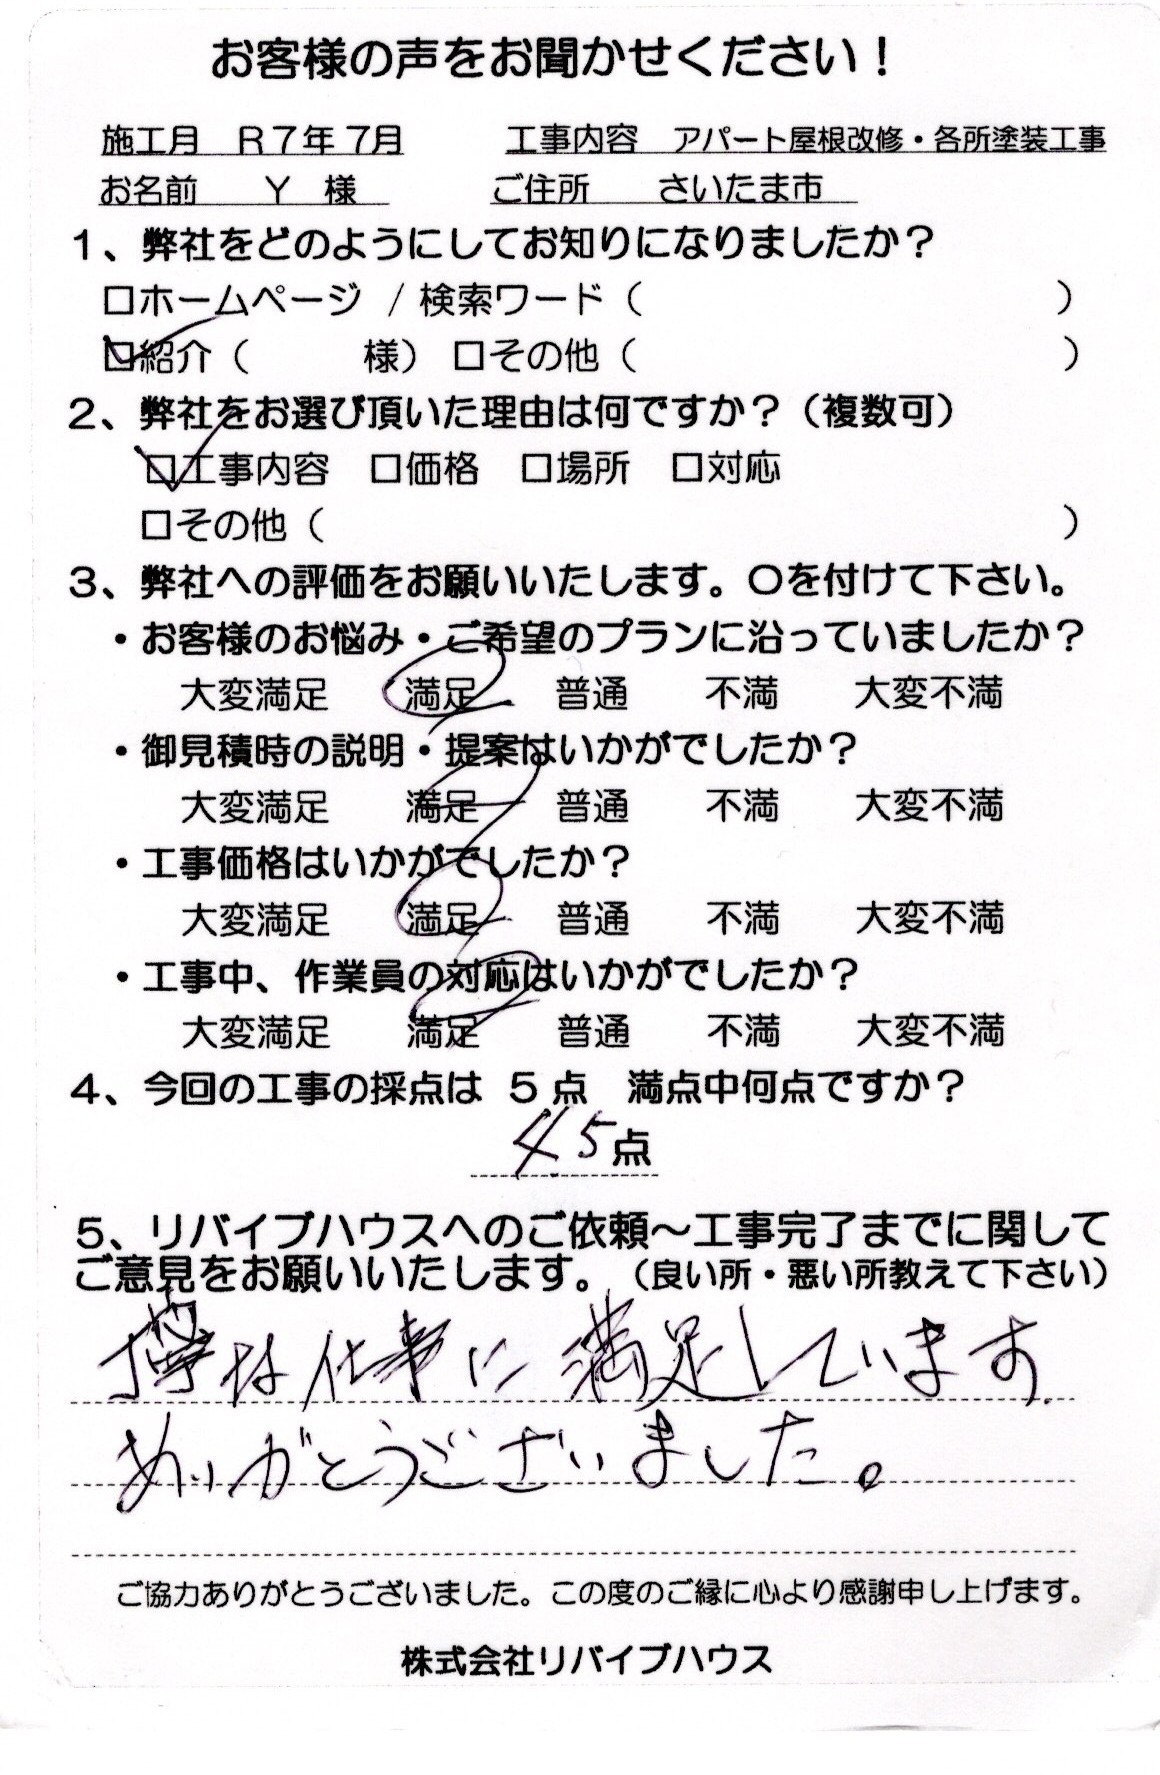 お客様の声をお聞かせください！
施工月　R７年７月　工事内容　アパート屋根改修・各所塗装工事
お名前　Y 様　ご住所　さいたま市
１、弊社をどのようにしてお知りになりましたか？
□ホームページ / 検索ワード（　）
☑紹介（　様）□その他（　）
２、弊社をお選び頂いた理由は何ですか？（複数可）
☑工事内容　□価格　□場所　□対応
□その他（　）
３、弊社への評価をお願いいたします。〇を付けて下さい。
・お客様のお悩み・ご希望のプランに沿っていましたか？
大変満足　満足　普通　不満　大変不満
・御見積時の説明・提案はいかがでしたか？
大変満足　満足　普通　不満　大変不満
・工事価格はいかがでしたか？
大変満足　満足　普通　不満　大変不満
・工事中、作業員の対応はいかがでしたか？
大変満足　満足　普通　不満　大変不満
４、今回の工事の採点は ５点　満点中何点ですか？
4.5点
５、リバイブハウスへのご依頼～工事完了までに関して
ご意見をお願いいたします。（良い所・悪い所教えて下さい）
丁寧な仕事に満足しています
ありがとうございました。
ご協力ありがとうございました。この度のご縁に心より感謝申し上げます。
株式会社リバイブハウス